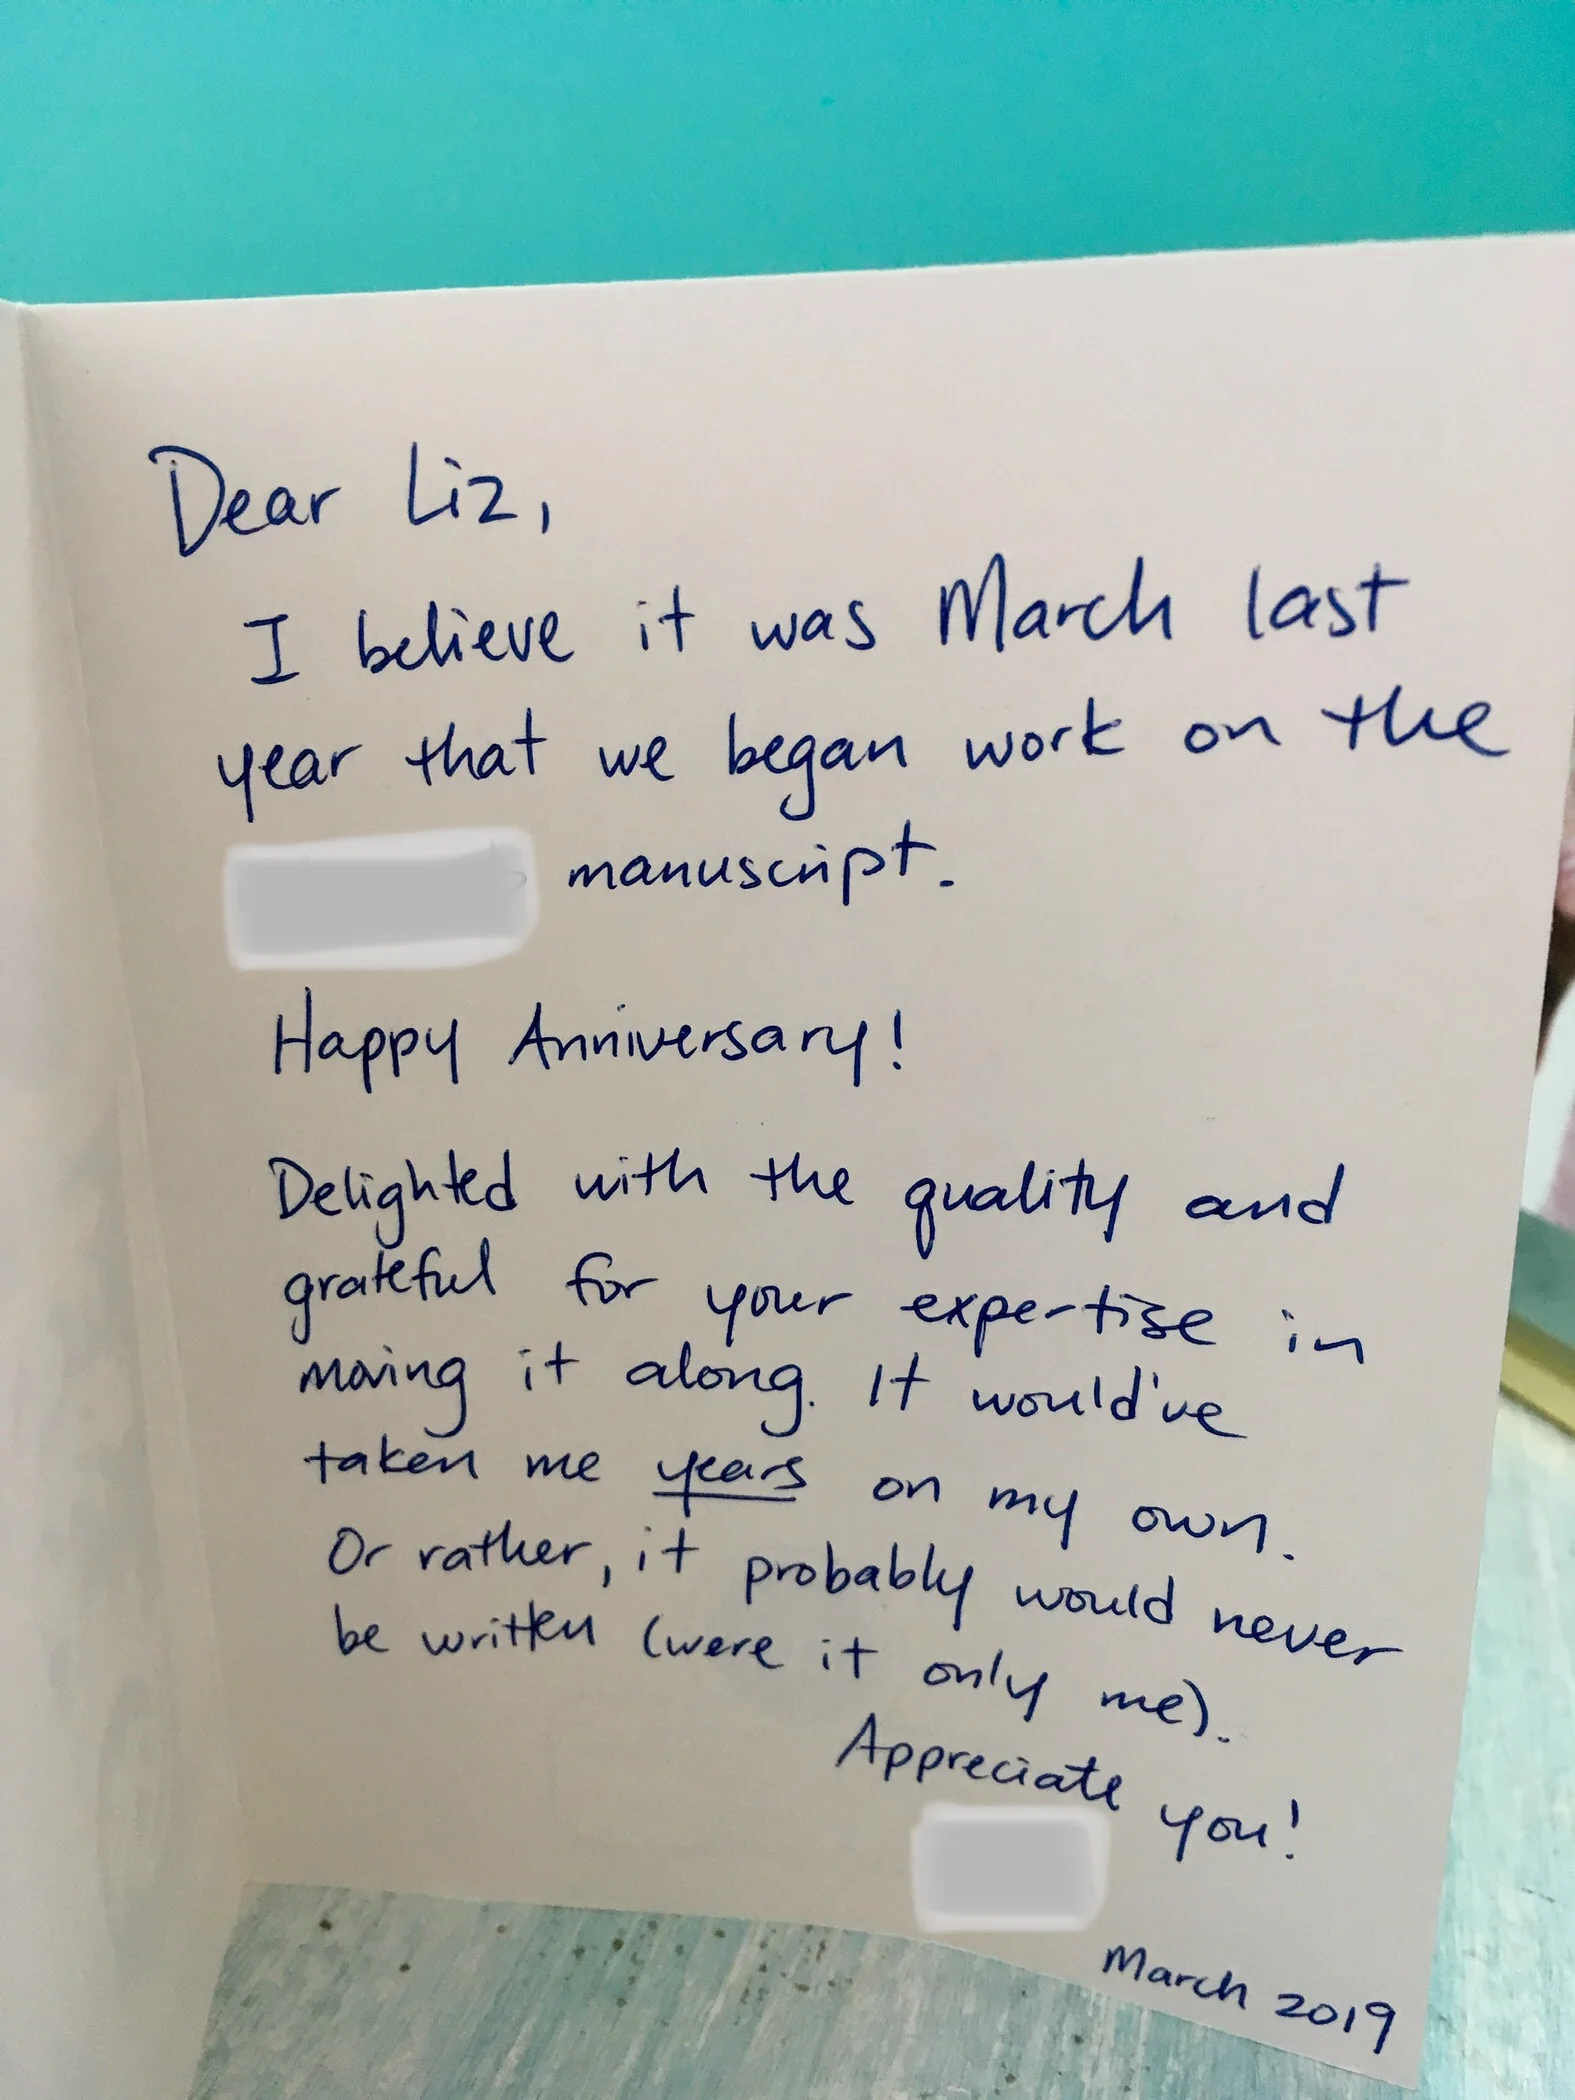 Dear Liz,
I believe it was March last
year that we began work on the
manuscript.
Happy Anniversary!
Delighted with the quality and
grateful for your expertise in
moving it along. It would've
taken me years on my own.
Or rather, it probably would never
be written (were it only me).
Appreciate you!
March 2019